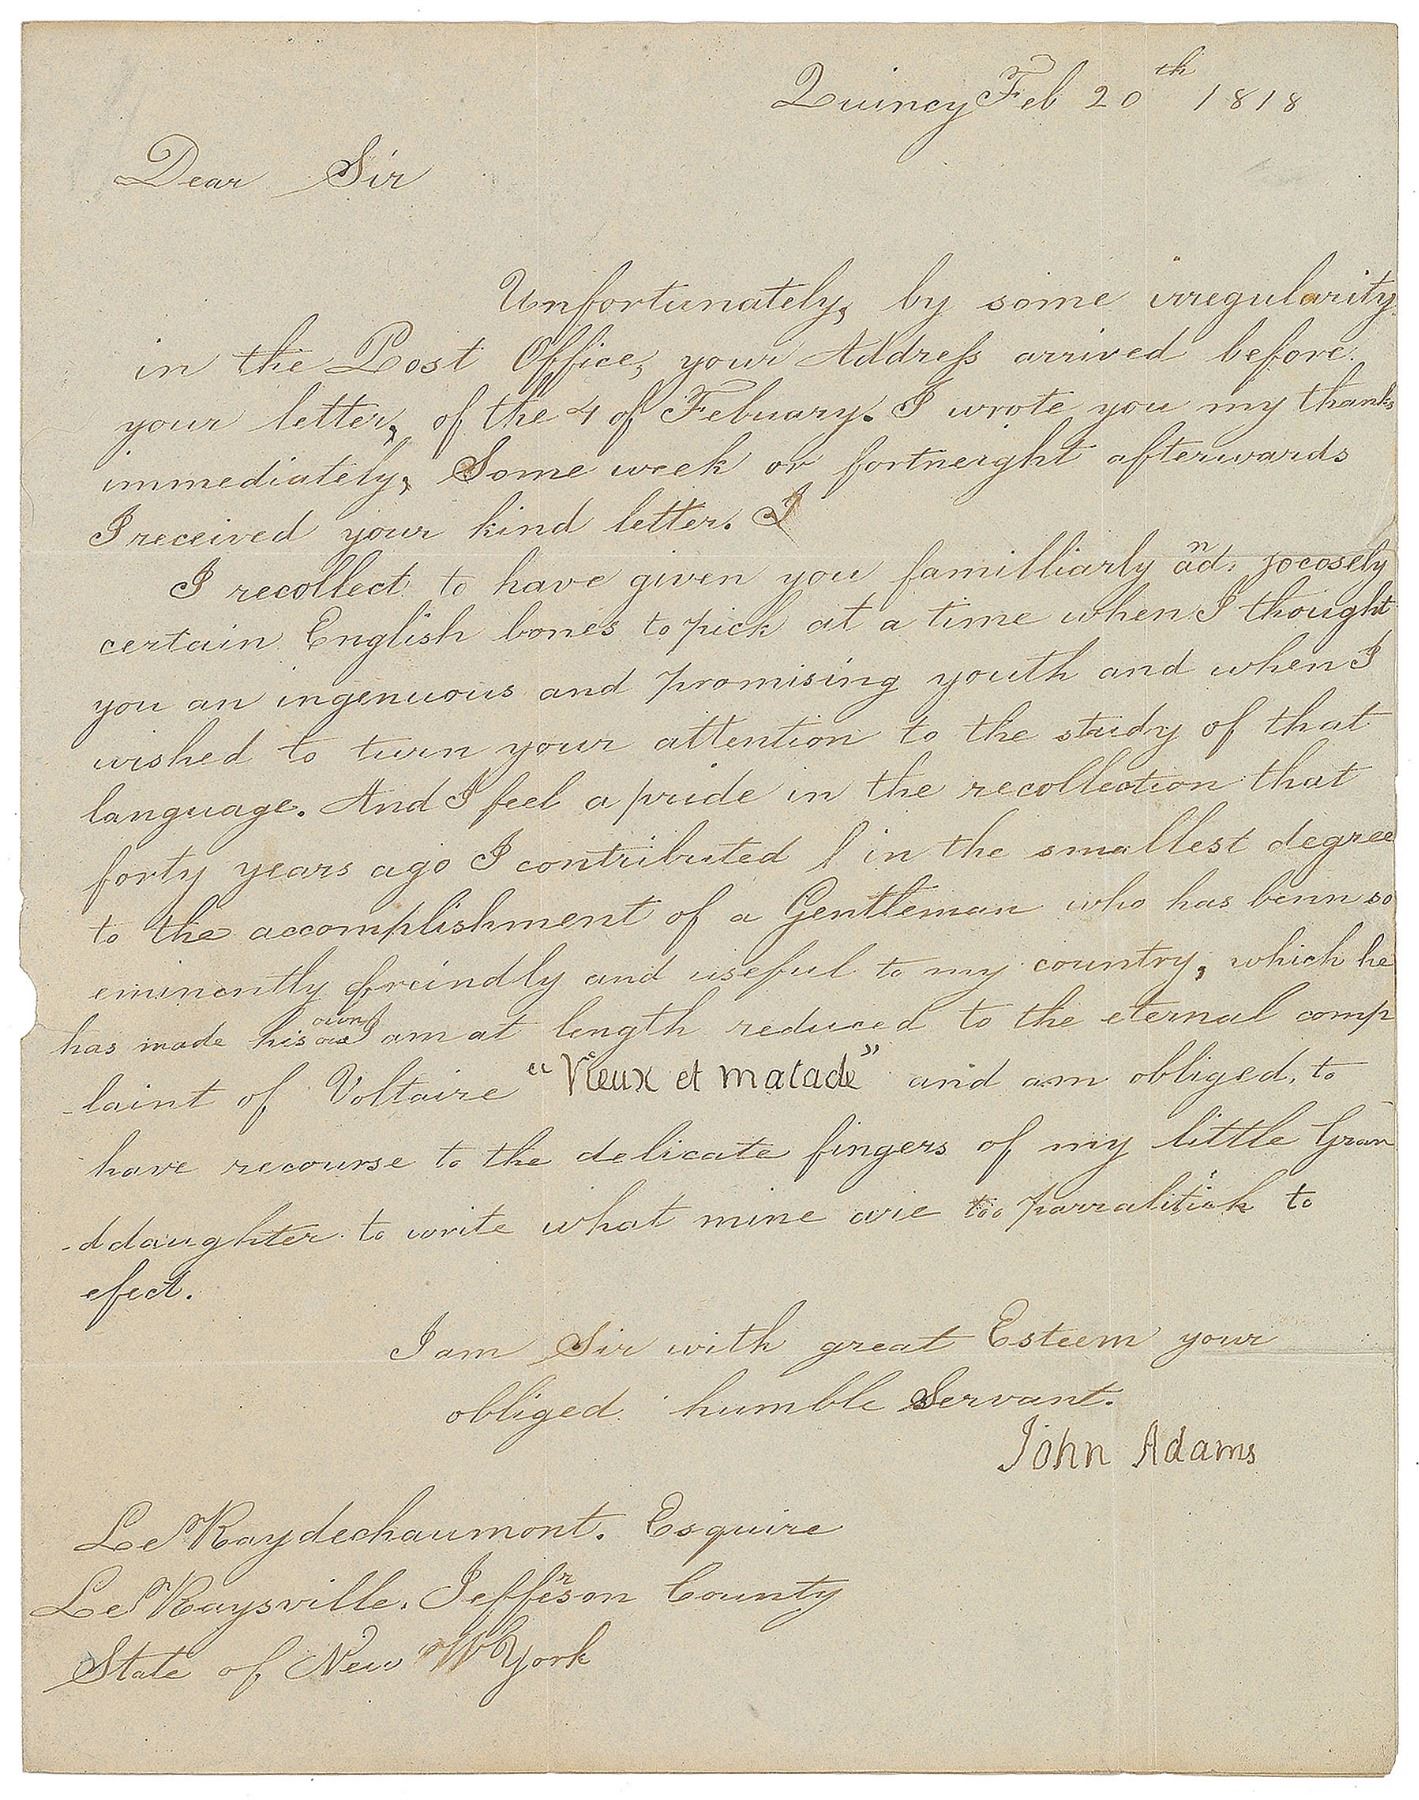 Quincy Feb 20th 1818
Dear Sir
Unfortunately, by some irregularity
in the Post Office, your Address arrived before
your letter, of the 4 of Febuary. I wrote you my thanks
immediately, Some week or fortneight afterwards
I received your kind letter. I
I recollect to have given you familliarly and jocosely
certain English bones to pick at a time when I thought
you an ingenuous and promising youth and when I
wished to turn your attention to the study of that
language. And I feel a pride in the recollection that
forty years ago I contributed in the smallest degree
to the accomplishment of a Gentleman who has benn so
eminently freindly and useful to my country, which he
has made his own I am at length reduced to the eternal comp
-laint of Voltaire "Vieux et malade" and am obliged, to
have recourse to the delicate fingers of my little Gran
-ddaughter to write what mine are too parralitick to
efect.
I am Sir with great Esteem your
obliged humble Servant.
John Adams
Le Raydechaumont. Esquire
Le Raysville. Jefferson County
State of New York